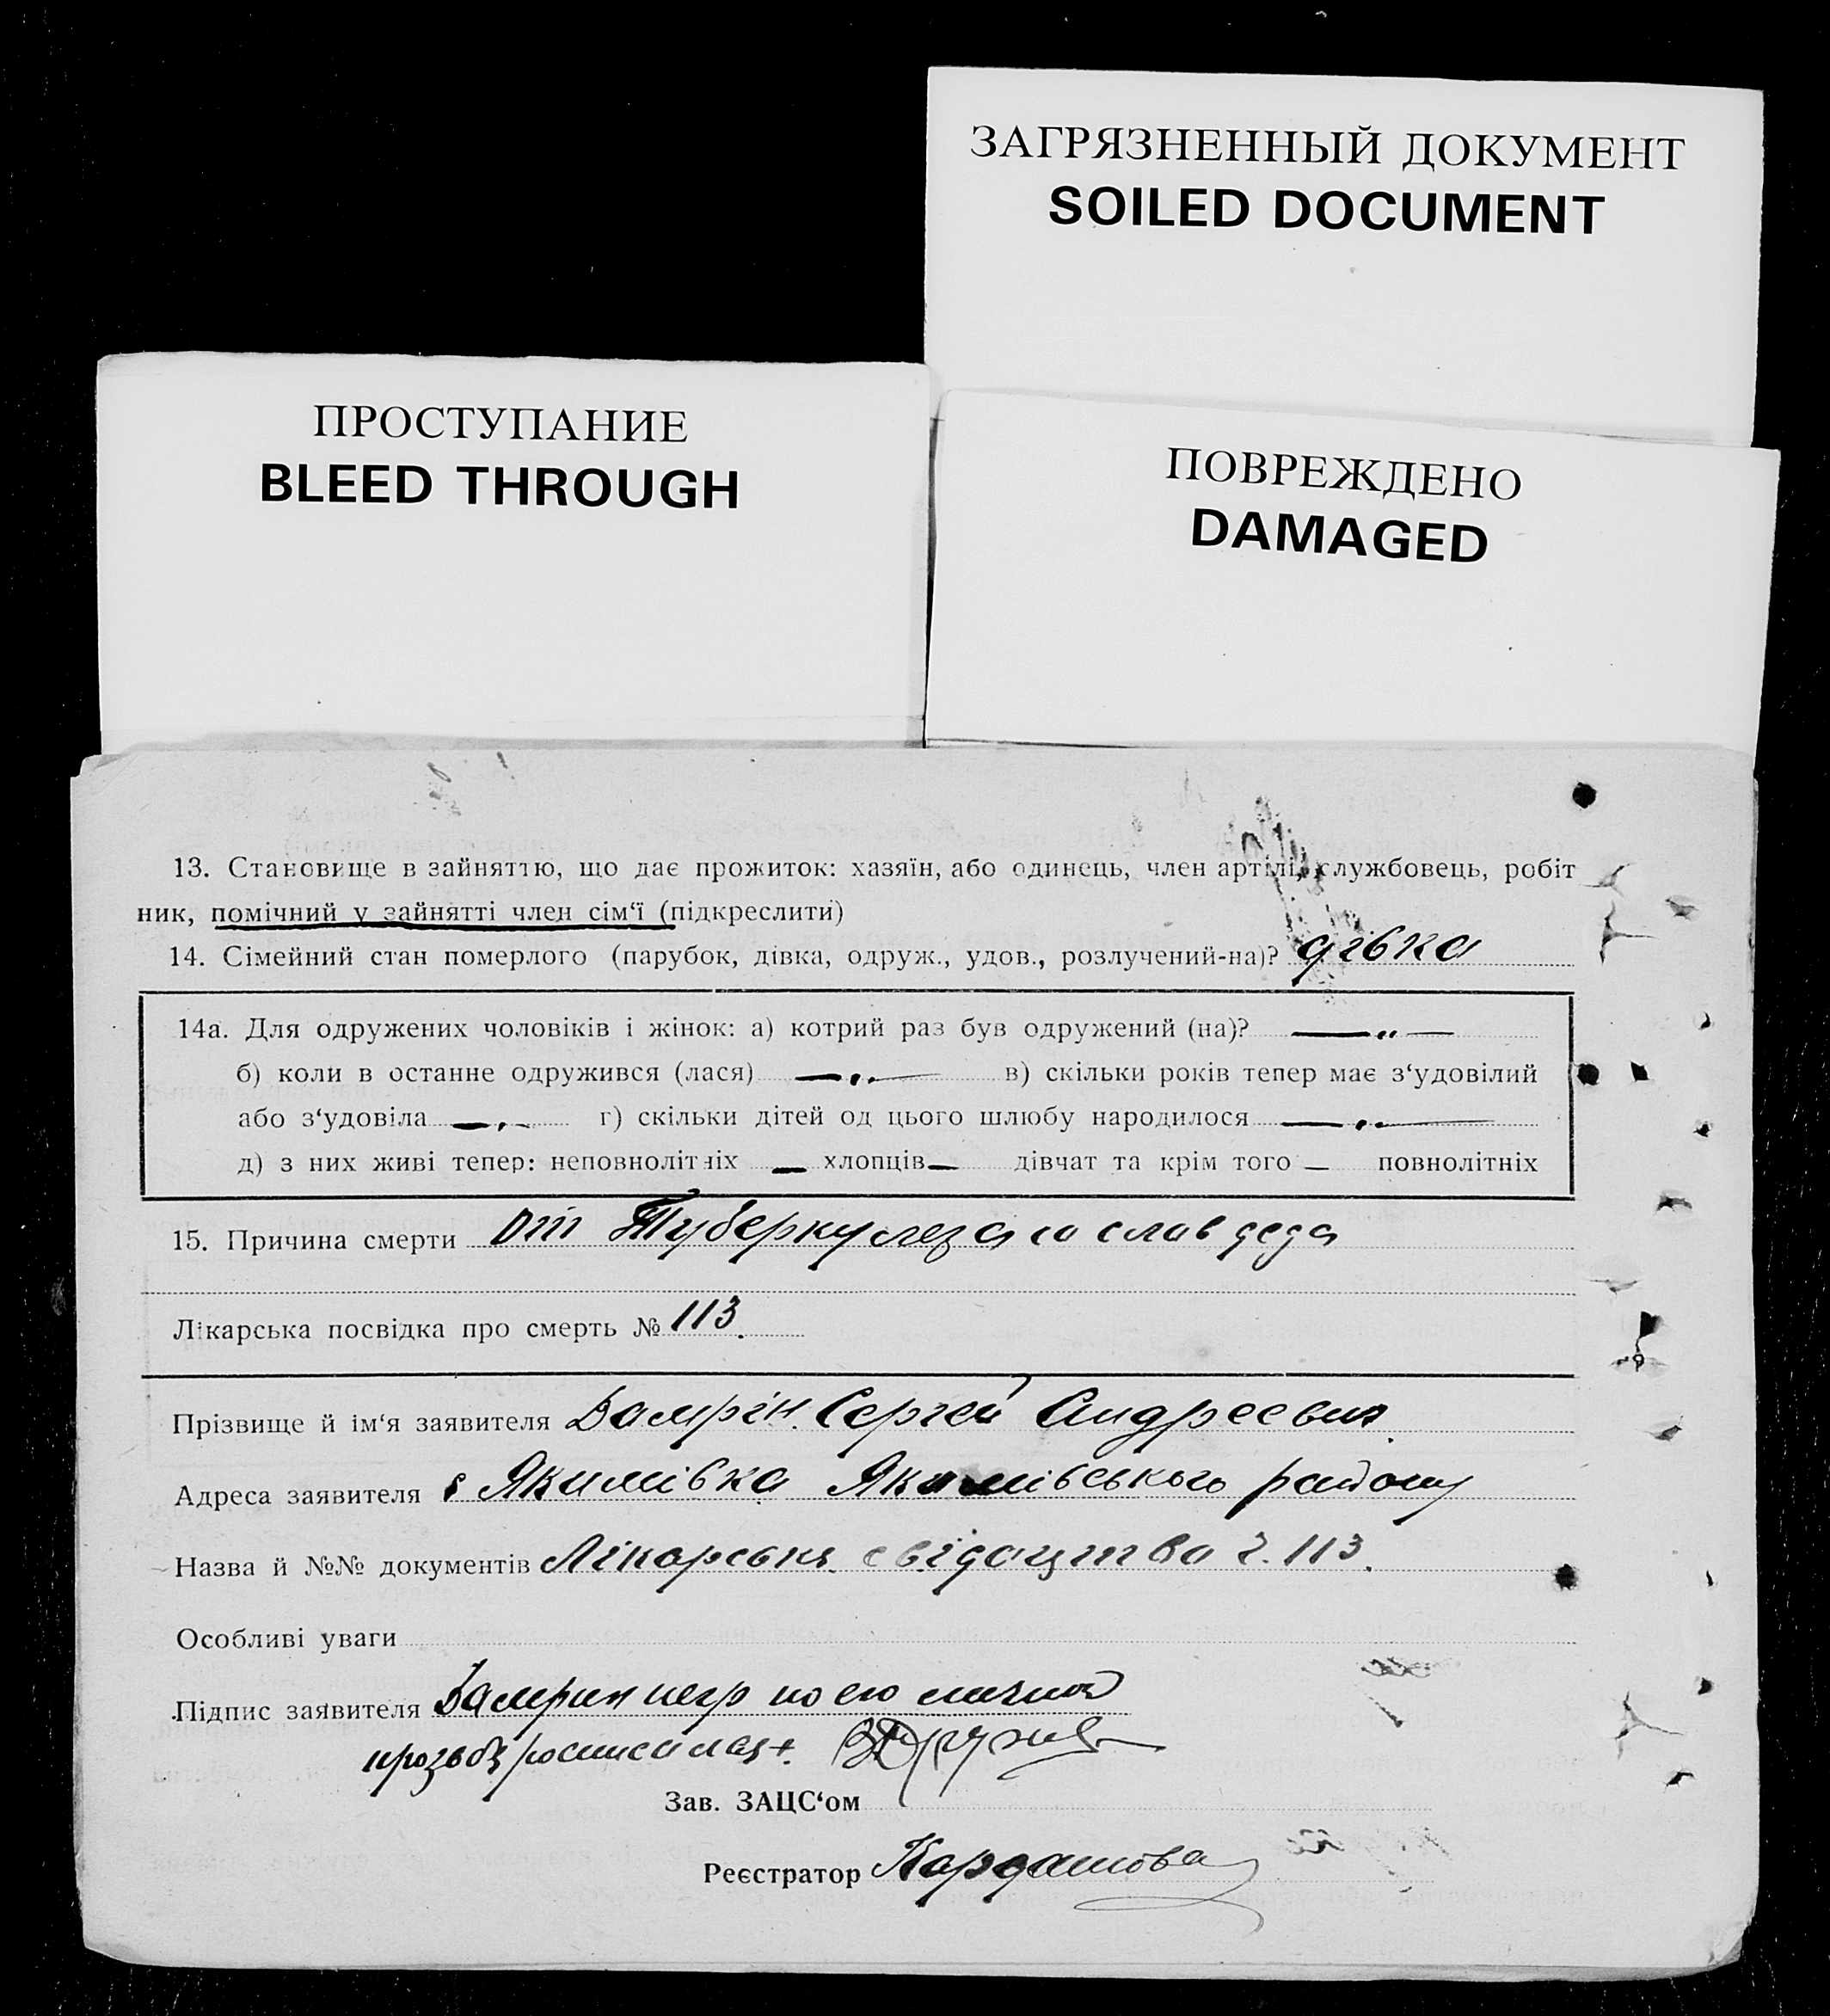 ЗАГРЯЗНЕННЫЙ ДОКУМЕНТ
SOILED DOCUMENT
ПРОСТУПАНИЕ
BLEED THROUGH
ПОВРЕЖДЕНО
DAMAGED
13. Становище в зайняттю, що дає прожиток: хазяїн, або одинець, член артілі, службовець, робіт
ник, помічний у зайнятті член сім‘ї (підкреслити)
14. Сімейний стан померлого (парубок, дівка, одруж., удов., розлучений-на)? дівка
14а. Для одружених чоловіків і жінок: а) котрий раз був одружений (на)? — „ —
б) коли в останне одружився (лася) — „ — в) скільки років тепер має з‘удовілий
або з‘удовіла — „ — г) скільки дітей од цього шлюбу народилося — „ —
д) з них живі тепер: неповнолітніх — хлопців — дівчат та крім того — повнолітніх
15. Причина смерти от Туберкулеза
Лікарська посвідка про смерть № 113.
Прізвище й ім‘я заявителя Замрін Сергей Андреевич.
Адреса заявителя с Якимівка Якимівського району
Назва й №№ документів Лікарська свідоцтво ч. 113.
Особливі уваги
Підпис заявителя Замрин негр по его личной
прозьбе росписалая.
Зав. ЗАЦС‘ом
Реєстратор Кардашова